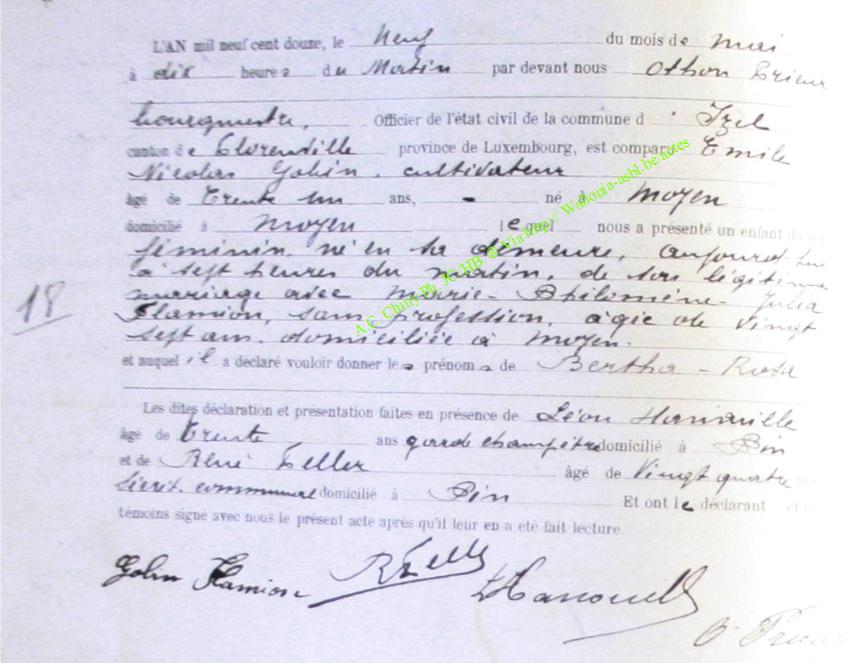 L'AN mil neuf cent douze, le Neuf du mois de mai
à dix heures du Matin par devant nous Othon Prieur
bourgmestre, Officier de l'état civil de la commune d' Izel
canton de Florenville province de Luxembourg, est comparu Emile
Nicolas Gobin, cultivateur
âgé de Trente un ans, né à Moyen
domicilié à Moyen lequel nous a présenté un enfant du
féminin, né en sa demeure, aujourd'hui
à sept heures du matin, de son légitime
mariage avec Marie-Philomène-Julia
Flamion, sans profession, âgée de vingt
sept ans, domiciliée à Moyen.
et auquel il a déclaré vouloir donner les prénoms de Bertha-Rosa
18
Les dites déclaration et présentation faites en présence de Léon
âgé de Trente ans garde champêtre domicilié à Pin
et de René âgé de Vingt quatre
secrét. communal domicilié à Pin Et ont le déclarant et
témoins signé avec nous le présent acte après qu'il leur en a été fait lecture.
Gobin Flamion
O. Prieur
A.C. Chiny Ph. JC HB @ Via http// Wallonia-asbl.be actes